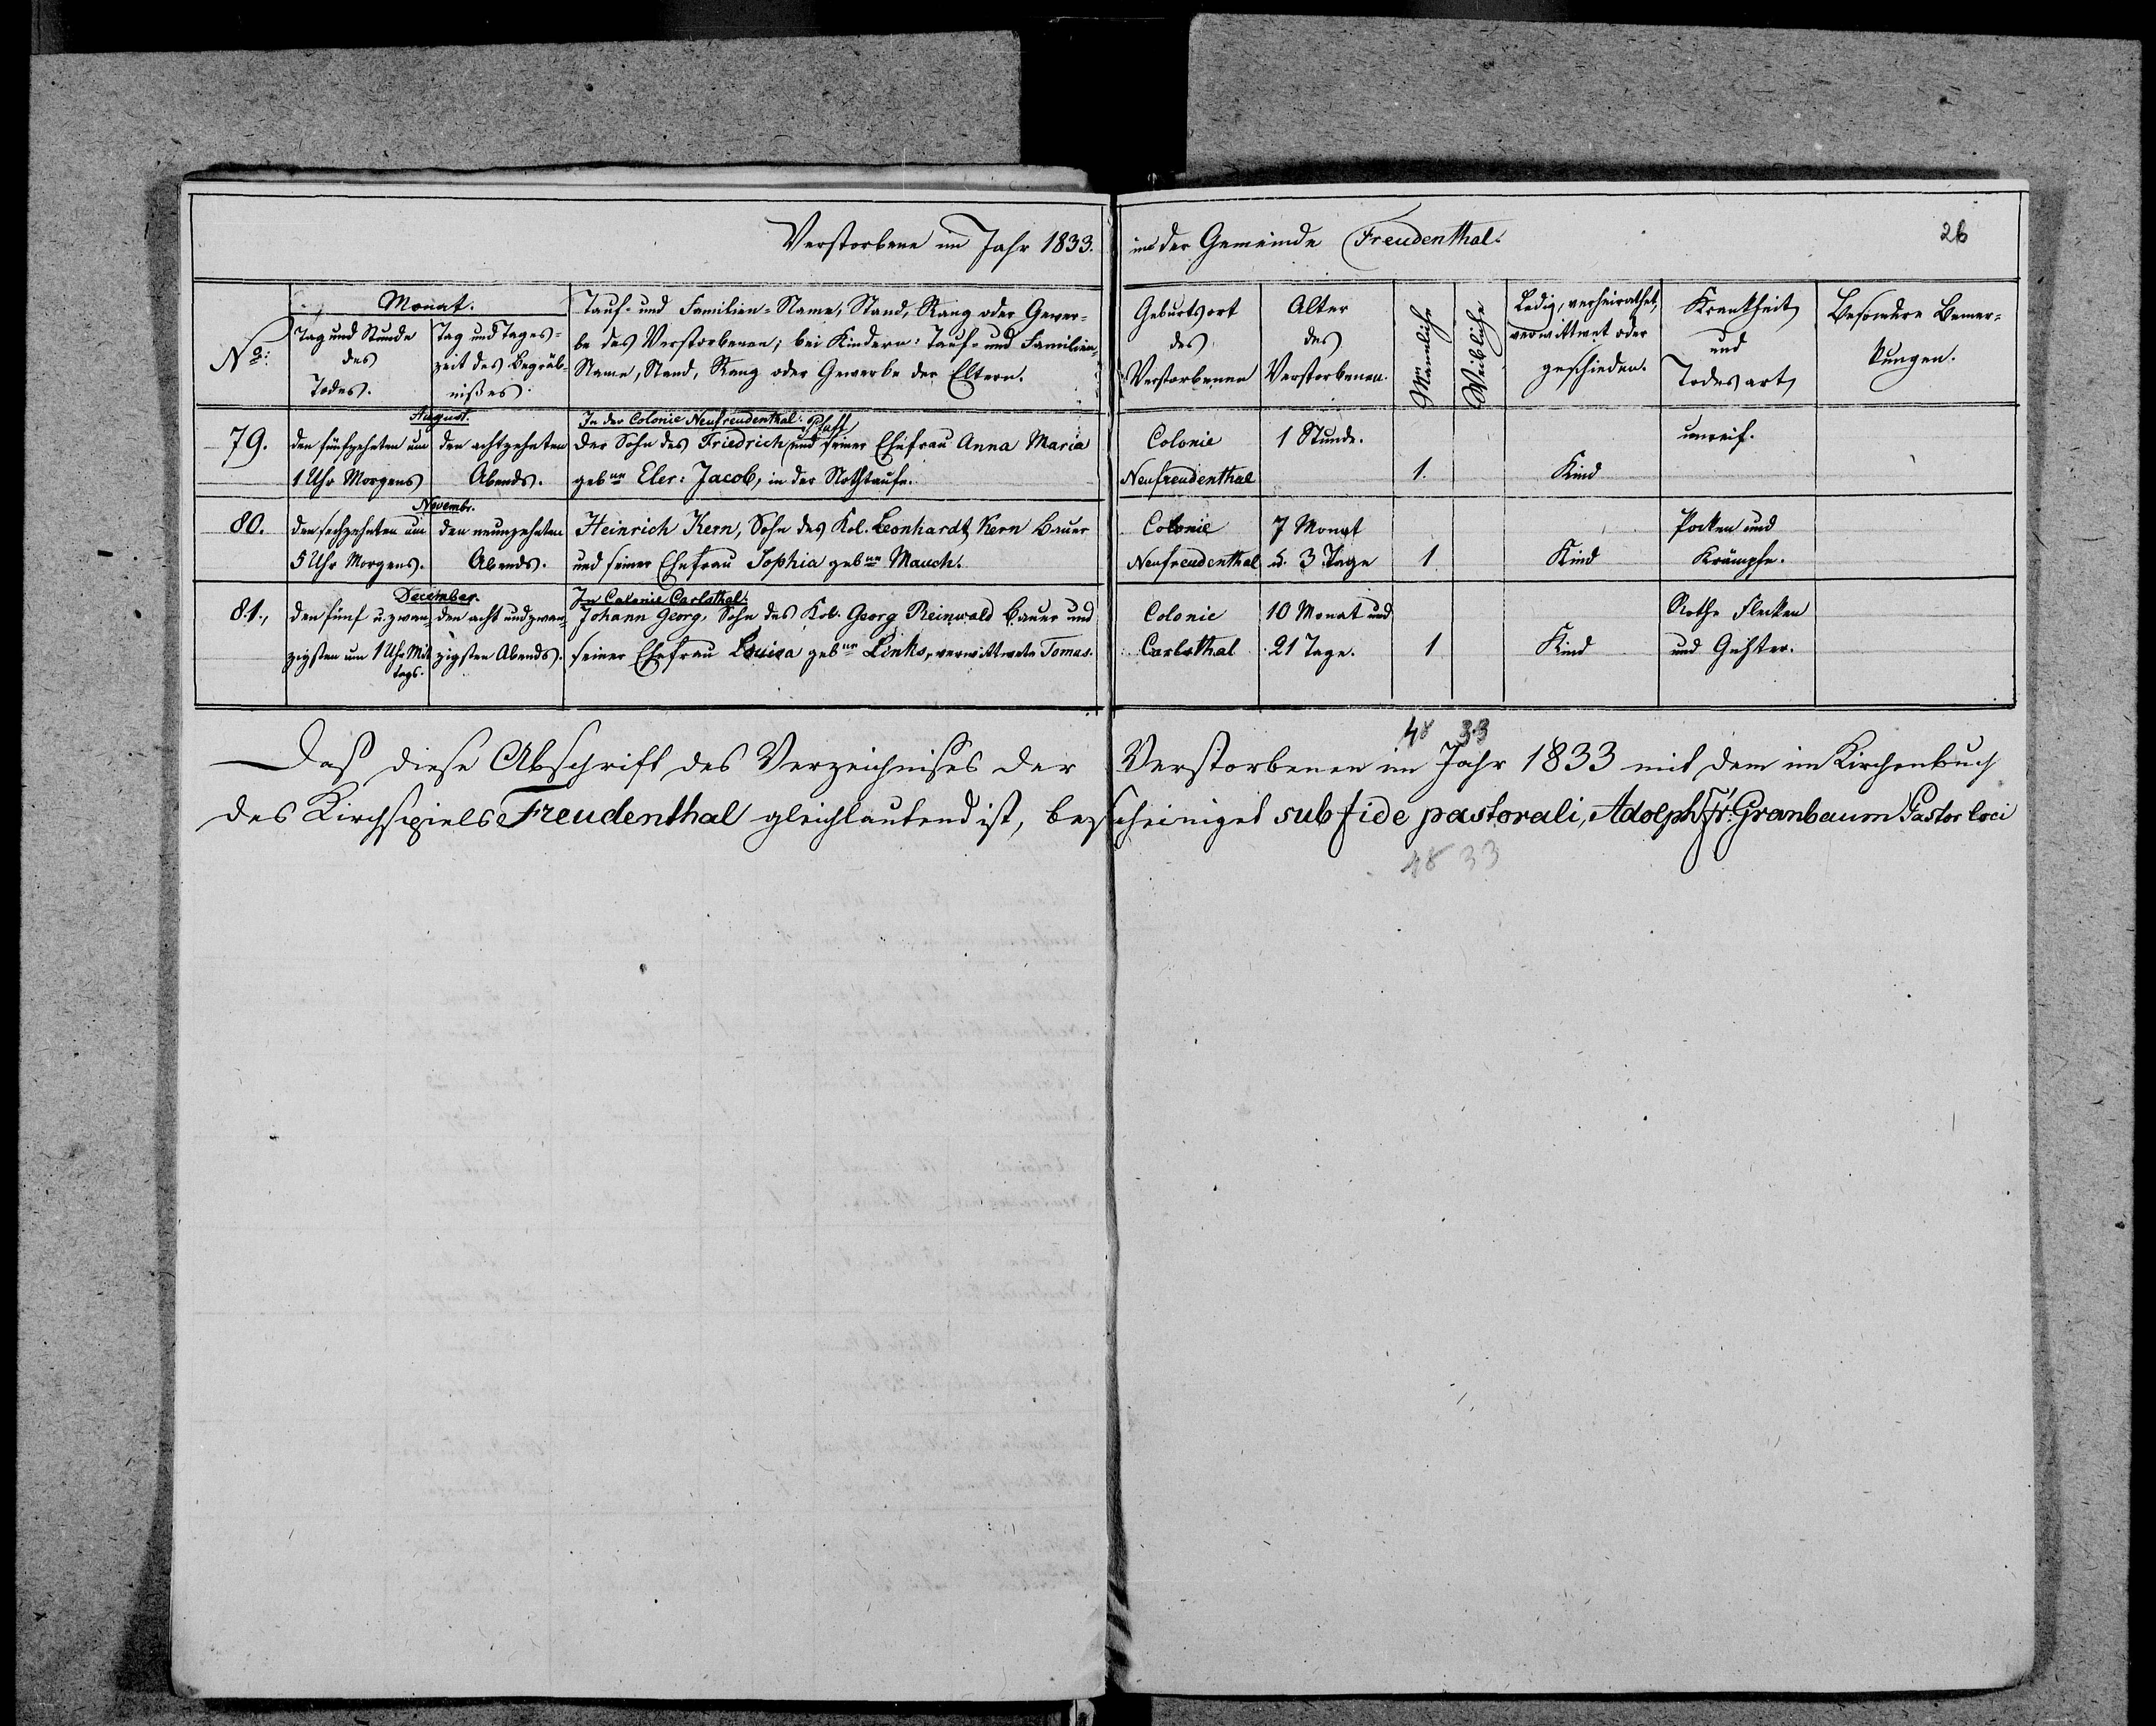 Verstorbene im Jahr 1833. in der Gemeinde Freudenthal. 26
No:
Monat.
Tag und Stunde
des
Todes.
Tag und Tages-
zeit des Begräb-
nißes:
Tauf- und Familien-Name, Stand, Rang oder Gewer-
be des Verstorbenen; bei Kindern: Tauf- und Familien-
Name, Stand, Rang oder Gewerbe der Eltern.
Geburtsort
des
Verstorbenen
Alter
des
Verstorbenen.
Männliche
Weibliche
Ledig, verheirathet,
verwittwet oder
geschieden.
Krankheit
und
Todesart
Besondere Bemer-
kungen.
79.
August.
den fünfzehnten um
1 Uhr Morgens
den achtzehnten
Abends.
In der Colonie Neufreudenthal:
Pfaff
Der Sohn des Friedrich und seiner Ehefrau Anna Maria
gebnn Eler: Jacob, in der Nothtaufe.
Colonie
Neufreudenthal
1 Stunde.
1.
Kind
unreif.
80.
Novembr.
den sechzehnten um
5 Uhr Morgens.
den neunzehnten
Abends.
Heinrich Kern, Sohn des Kol. Leonhardt Kern Bauer
und seiner Ehefrau Sophia gebnn Mauch.
Colonie
Neufreudenthal
7 Monat
u. 3 Tage
1
Kind
Pocken und
Krämpfe.
81.,
December.
den fünf u. zwan-
zigsten um 1 Uhr Mit
tags.
den acht und zwan-
zigsten Abends.
In Colonie Carlsthal:
Johann Georg, Sohn des Kol. Georg Reinwald Bauer und
seiner Ehefrau Louisa gebnn Links, verwittwete Tomas.
Colonie
Carlsthal
10 Monat und
21 Tage.
1
Kind
Rothe Flecken
und Gichter.
48 33
Daß diese Abschrift des Verzeichnißes der Verstorbenen im Jahr 1833 mit dem im Kirchenbuch
des Kirchspiels Freudenthal gleichlautend ist, bescheiniget sub fide pastorali, Adolph Fr: Granbaum Pastor loci
48 33